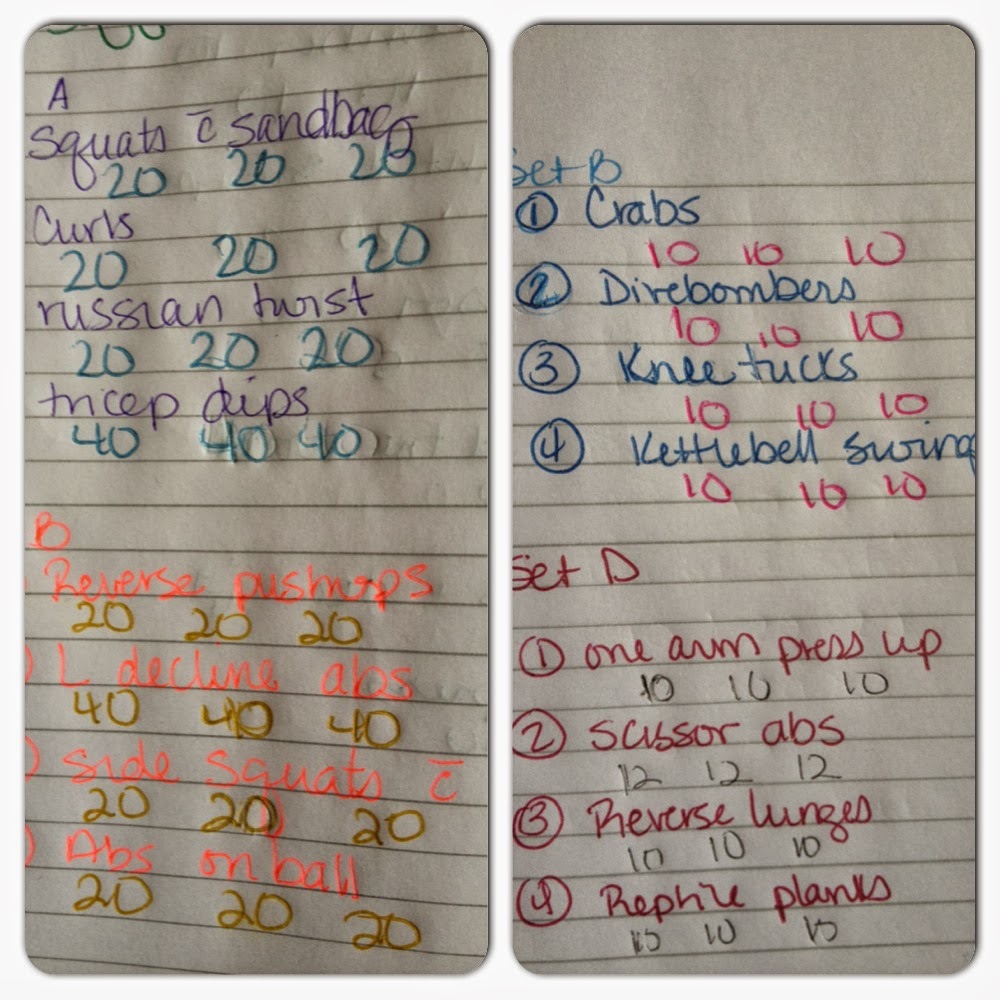 A
Squats c̄ sandbag
20 20 20
Curls
20 20 20
russian twist
20 20 20
tricep dips
40 40 40
B
Reverse pushups
20 20 20
) L decline abs
40 40 40
) side squats c̄
20 20 20
) Abs on ball
20 20 20
Set B
① Crabs
10 10 10
② Divebombers
10 10 10
③ Knee tucks
10 10 10
④ Kettlebell swing
10 10 10
Set D
① one arm press up
10 10 10
② scissor abs
12 12 12
③ Reverse lunges
10 10 10
④ Reptile planks
10 10 10